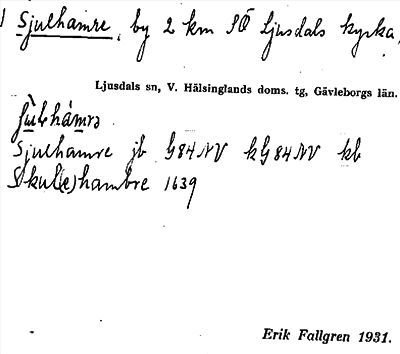 Sjulhamre, by 2 km SÖ Ljusdals kyrka,
Ljusdals sn, V. Hälsinglands doms. tg, Gävleborgs län.
Sjulhamre jb G84NV kG84NV kb
Skul(e)hambre 1639
Erik Fallgren 1931.